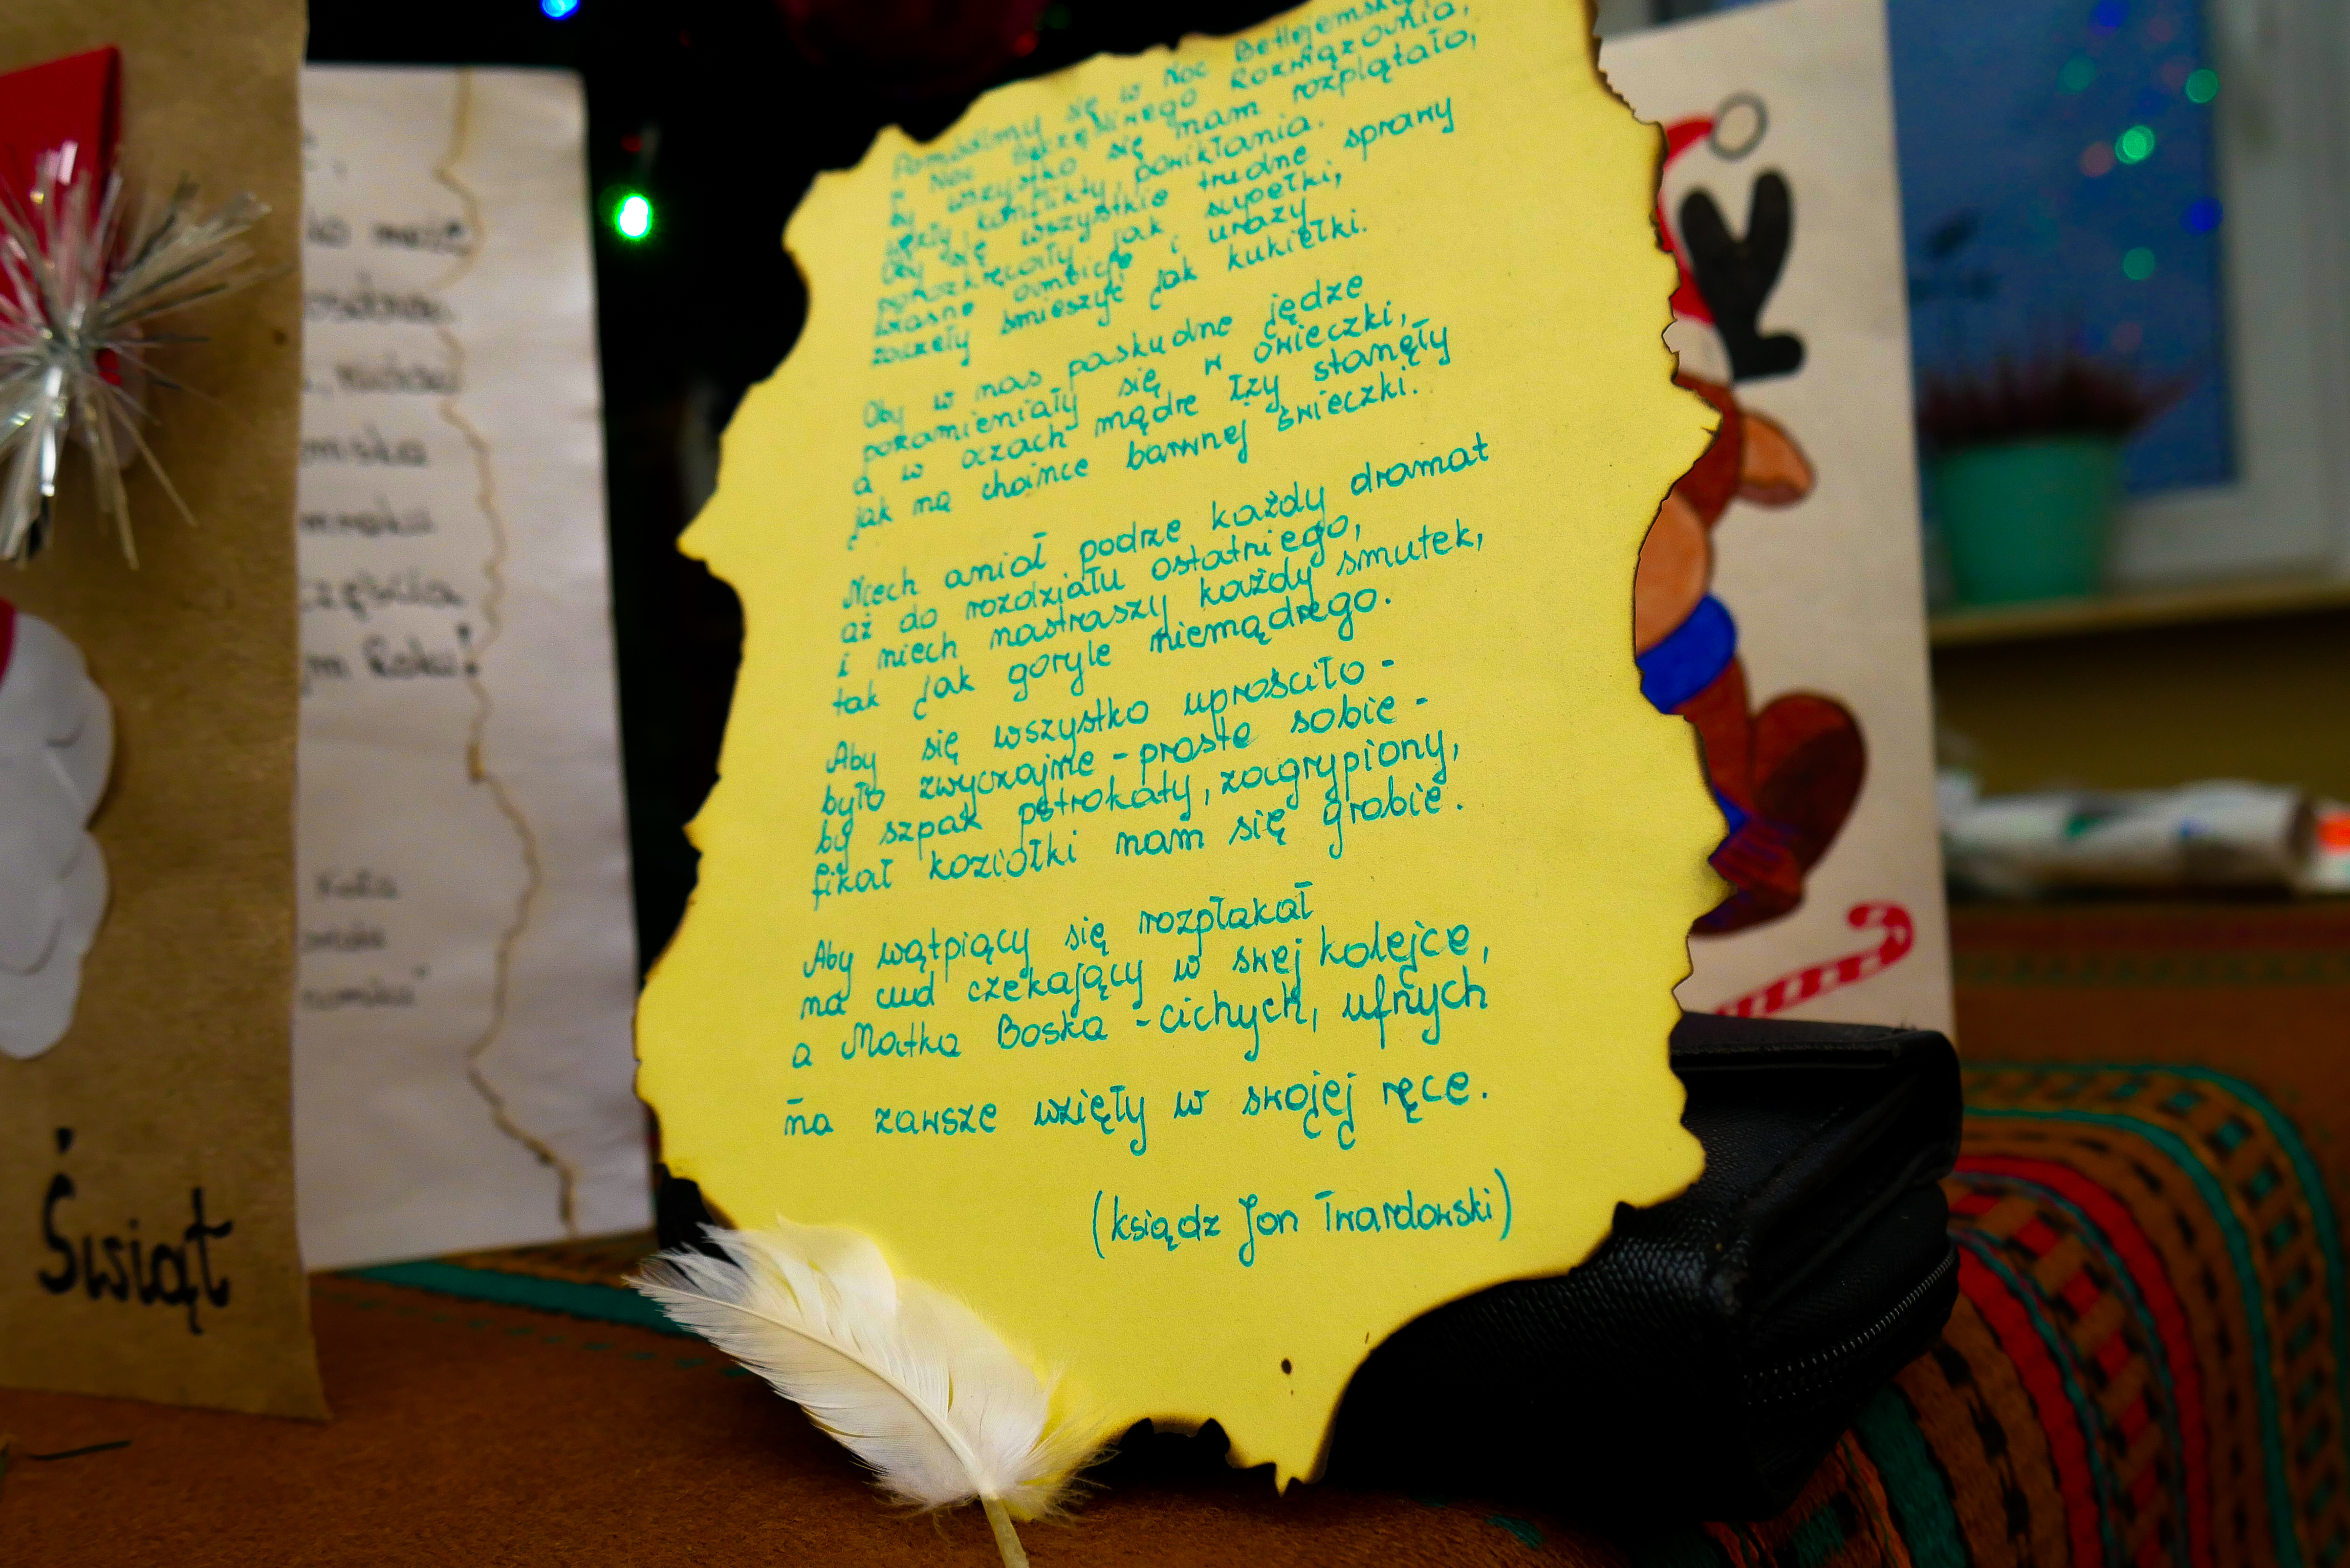 Pomódlmy się w Noc Betlejemską,
w Noc Szczęśliwego Rozwiązania,
by wszystko się nam rozplątało,
węzły, konflikty, powikłania.
Oby się wszystkie trudne sprawy
porozkręcały jak supełki,
własne ambicje i urazy
zaczęły śmieszyć jak kukiełki.
Oby w nas paskudne jędze
pozamieniały się w owieczki,
a w oczach mądre łzy stanęły
jak na choince barwnej świeczki.
Niech anioł podrze każdy dramat
aż do rozdziału ostatniego,
i niech nastraszy każdy smutek,
tak jak goryle niemądrego.
Aby się wszystko uprościło -
było zwyczajne - proste sobie -
by szpak pstrokaty, zagrypiony,
fikał koziołki nam się grobie.
Aby wątpiący się rozpłakał
na cud czekający w swej kolejce,
a Matka Boska - cichych, ufnych
na zawsze wzięły w swojej ręce.
(ksiądz Jan Twardowski)
Świąt